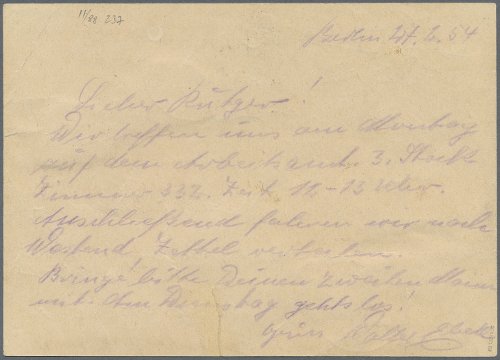 11/88 237
Berlin 27.2.54
Lieber Rutger!
Wir treffen uns am Montag
auf dem Arbeitsamt. 3. Stock
Zimmer 332. Zeit 12-13 Uhr.
Anschließend fahren wir nach
Zettel verteilen.
Bringe bitte Deinen zweiten Mann
mit. Am Dienstag gehts los!
Gruss